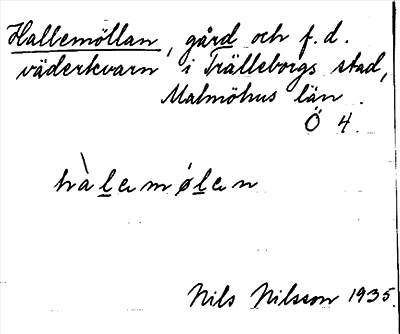 Hallemöllan, gård och f.d.
väderkvarn i Trälleborgs stad,
Malmöhus län.
Ö 4.
hàlemølen
Nils Nilsson 1935.